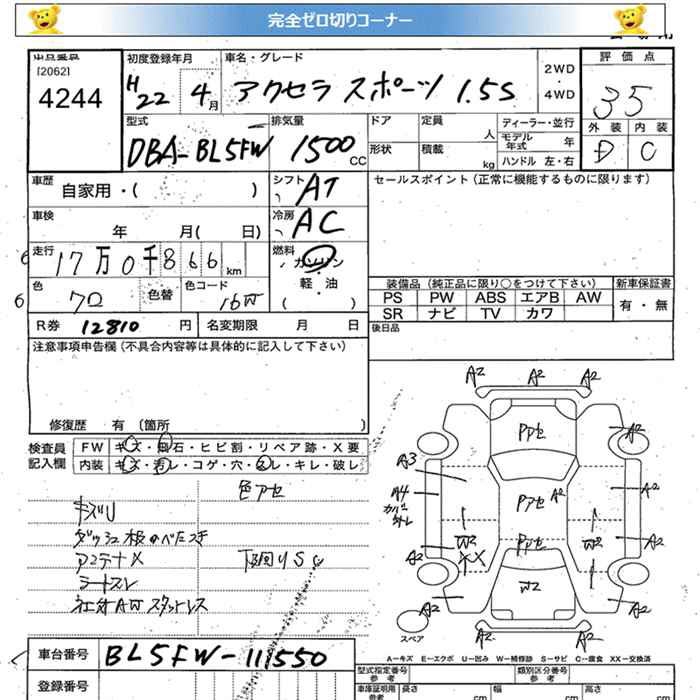 完全ゼロ切りコーナー
出品番号
[2062]
4244
初度登録年月
H22 4月
車名・グレード
アクセラスポーツ 1.5S
2WD
・
4WD
評価点
35
外装 内装
D C
型式
DBA-BL5FW
排気量
1500 CC
ドア
形状
定員 人
積載 kg
ディーラー・並行
モデル年式 年
ハンドル 左・右
車歴
自家用・( )
シフト AT
セールスポイント(正常に機能するものに限ります)
車検
年 月( 日)
冷房 AC
走行
17万0千866 km
燃料
ガソリン
軽・油
( )
色
クロ
色替
色コード
16W
装備品(純正品に限り○をつけて下さい)
新車保証書
PS PW ABS エアB AW
有・無
SR ナビ TV カワ
R券 12810 円
名変期限 月 日
後日品
注意事項申告欄(不具合内容等は具体的に記入して下さい)
修復歴 有 〔箇所 〕
検査員記入欄
FW キズ・飛石・ヒビ割・リペア跡・X要
内装 キズ・汚レ・コゲ・穴・スレ・キレ・破レ
色アセ
キズU
ダッシュ板のベタつき
アンテナX
下回りSC
シートスレ
社外AWスタッドレス
A2 A2 A2
Pアセ
A2
A3
A4
カバー
外レ
Pアセ A2
A2
W2
XX
Pアセ
W2
A2
A2
W2
A2
A2
A2
A2
スペア
A-キズ E-エクボ U-凹み W-補修跡 S-サビ C-腐食 XX-交換済
車台番号 BL5FW-111550
登録番号
型式指定番号
参考
類別区分番号
参考
車庫証明用
参考
長さ cm
幅 cm
高さ cm